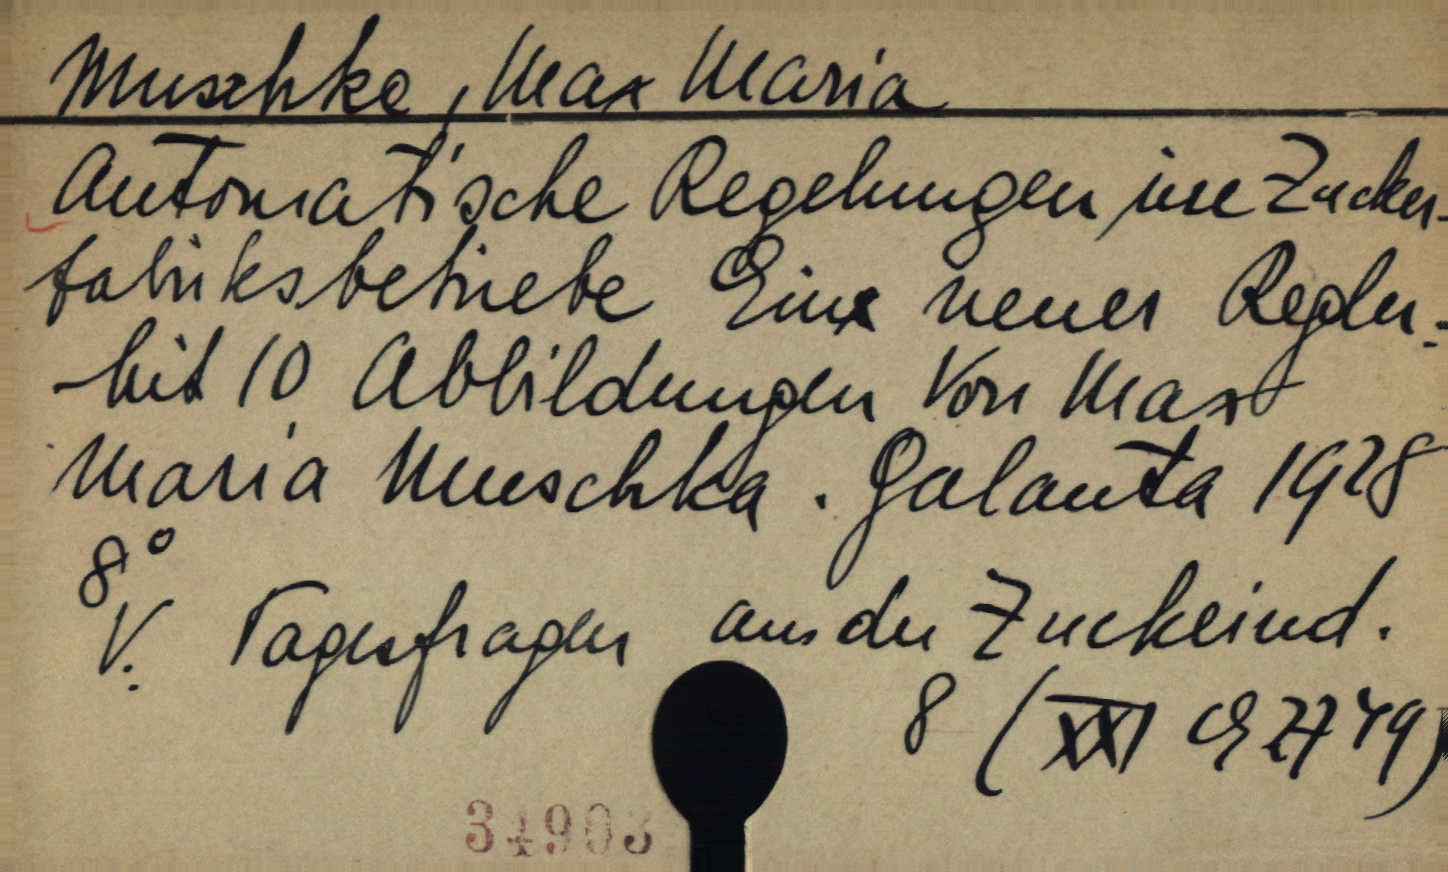 Muschka, Max Maria
Automatische Regelungen im Zucker-
fabriksbetriebe Ein neuer Regler.
Mit 10 Abbildungen Von Max
Maria Muschka. Galanta 1928
8°
V. Tagesfragen aus der Zuckerind.
8 (XXI 749)
34903